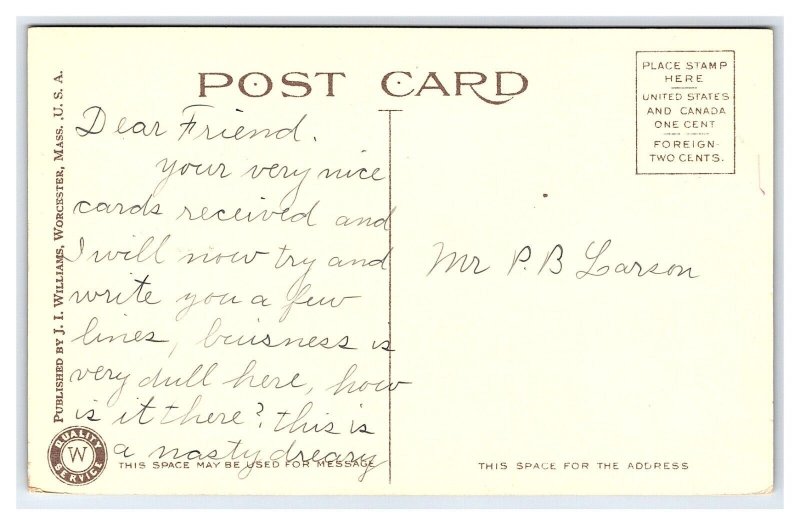 POST CARD
PLACE STAMP
HERE
UNITED STATES
AND CANADA
ONE CENT
FOREIGN-
TWO CENTS.
PUBLISHED BY J. I. WILLIAMS, WORCESTER, MASS., U. S. A.
Dear Friend.
your very nice
cards received and
I will now try and
write you a few
lines, buisness is
very dull here, how
is it there? this is
a nasty dreary
Mr P. B Larson
QUALITY
W
SERVICE
THIS SPACE MAY BE USED FOR MESSAGE
THIS SPACE FOR THE ADDRESS